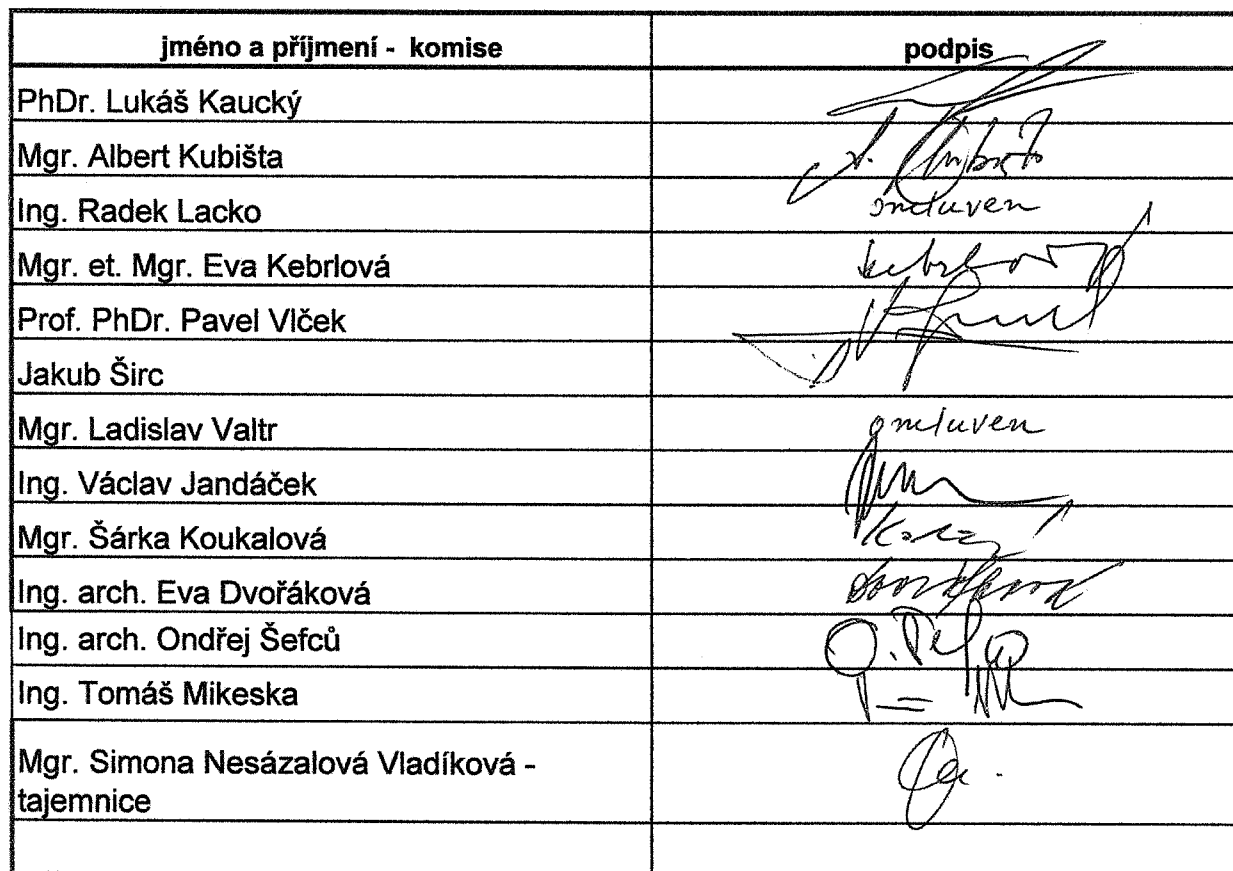 jméno a příjmení - komise podpis
PhDr. Lukáš Kaucký
Mgr. Albert Kubišta
Ing. Radek Lacko omluven
Mgr. et. Mgr. Eva Kebrlová
Prof. PhDr. Pavel Vlček
Jakub Širc
Mgr. Ladislav Valtr omluven
Ing. Václav Jandáček
Mgr. Šárka Koukalová
Ing. arch. Eva Dvořáková
Ing. arch. Ondřej Šefců
Ing. Tomáš Mikeska
Mgr. Simona Nesázalová Vladíková -
tajemnice